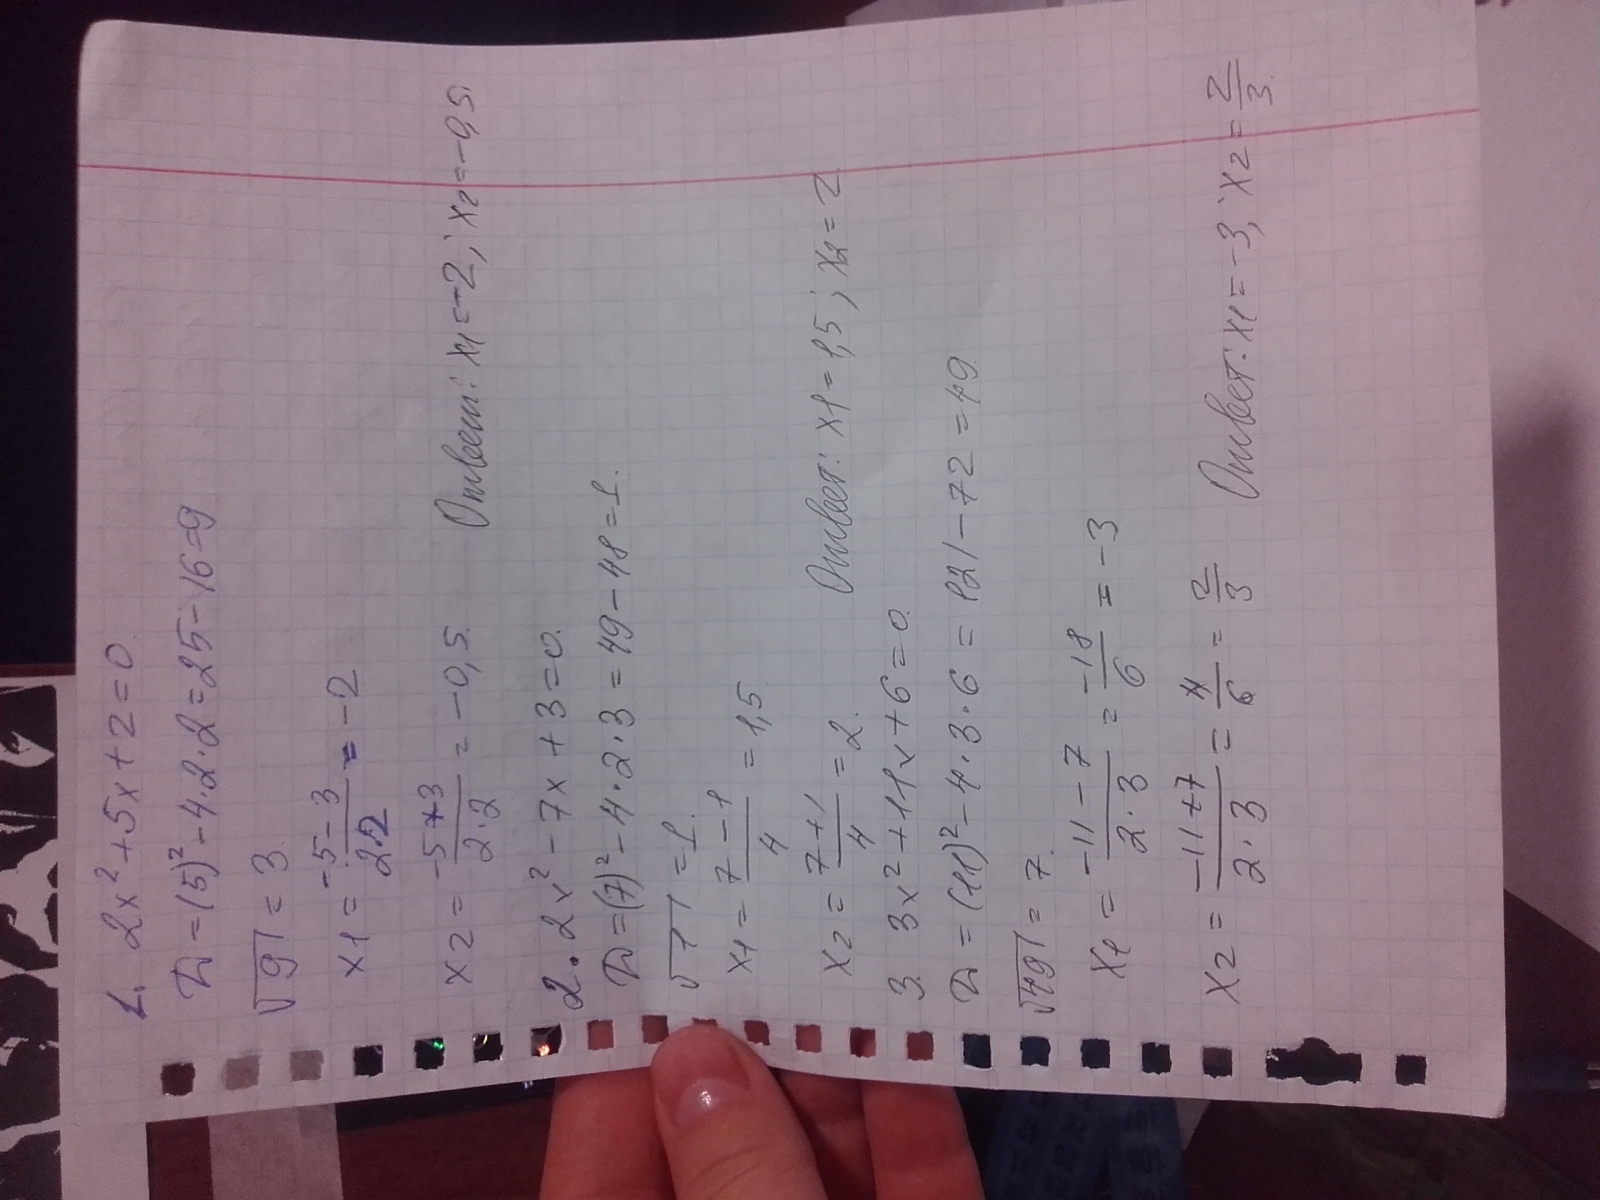 1. 2x²+5x+2=0
D=(5)²-4·2·2=25-16=9
√9=3
x1=-5-3/2·2=-2
x2=-5+3/2·2=-0,5. Ответ: x1=-2; x2=-0,5.
2. 2x²-7x+3=0.
D=(7)²-4·2·3=49-48=1.
√1=1.
x1=7-1/4=1,5
x2=7+1/4=2. Ответ: x1=1,5; x2=2
3. 3x²+11x+6=0.
D=(11)²-4·3·6=121-72=49.
√49=7.
x1=-11-7/2·3=-18/6=-3
x2=-11+7/2·3=4/6=2/3 Ответ: x1=-3; x2=2/3.